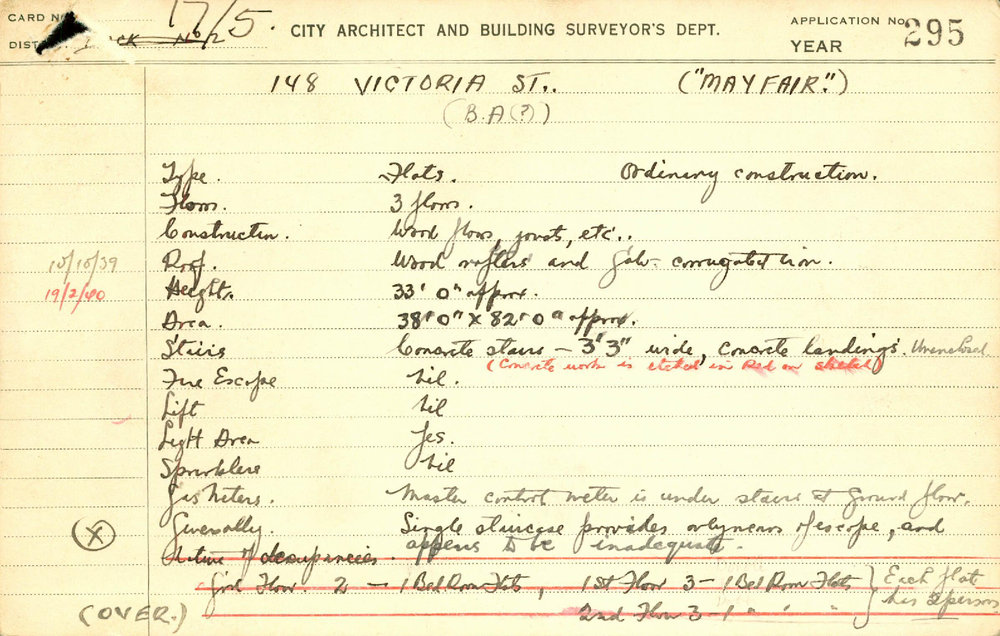 CARD No 17/5. CITY ARCHITECT AND BUILDING SURVEYOR'S DEPT. APPLICATION No. 295
DIST. Block No/2 YEAR
148 VICTORIA ST.. ("MAYFAIR.")
(B.A(?))
Type. Flats. Ordinary construction.
Floors. 3 floors.
Construction. Wood floors, joists, etc..
10/10/39 Roof. Wood rafters and Galv. corrugated iron.
19/2/40 Height. 33' 0" approx.
Area. 38' 0" x 82' 0" approx.
Stairs Concrete stairs — 3' 3" wide, concrete landings. Unenclosed
(Concrete work is etched in Red on sketch)
Fire Escape Nil.
Lift Nil
Light Area Yes.
Sprinklers Nil
Gas Meters. Master control meter is under stairs at Ground floor.
(X) Generally. Single staircase provides only means of escape, and
appears to be inadequate.
Nature of occupancies.
Grd Floor. 2 — 1 Bed Room Flats, 1st Floor 3 — 1 Bed Room Flats } Each flat
(OVER.) 2nd Floor 3 - 1 " " " } has 2 persons